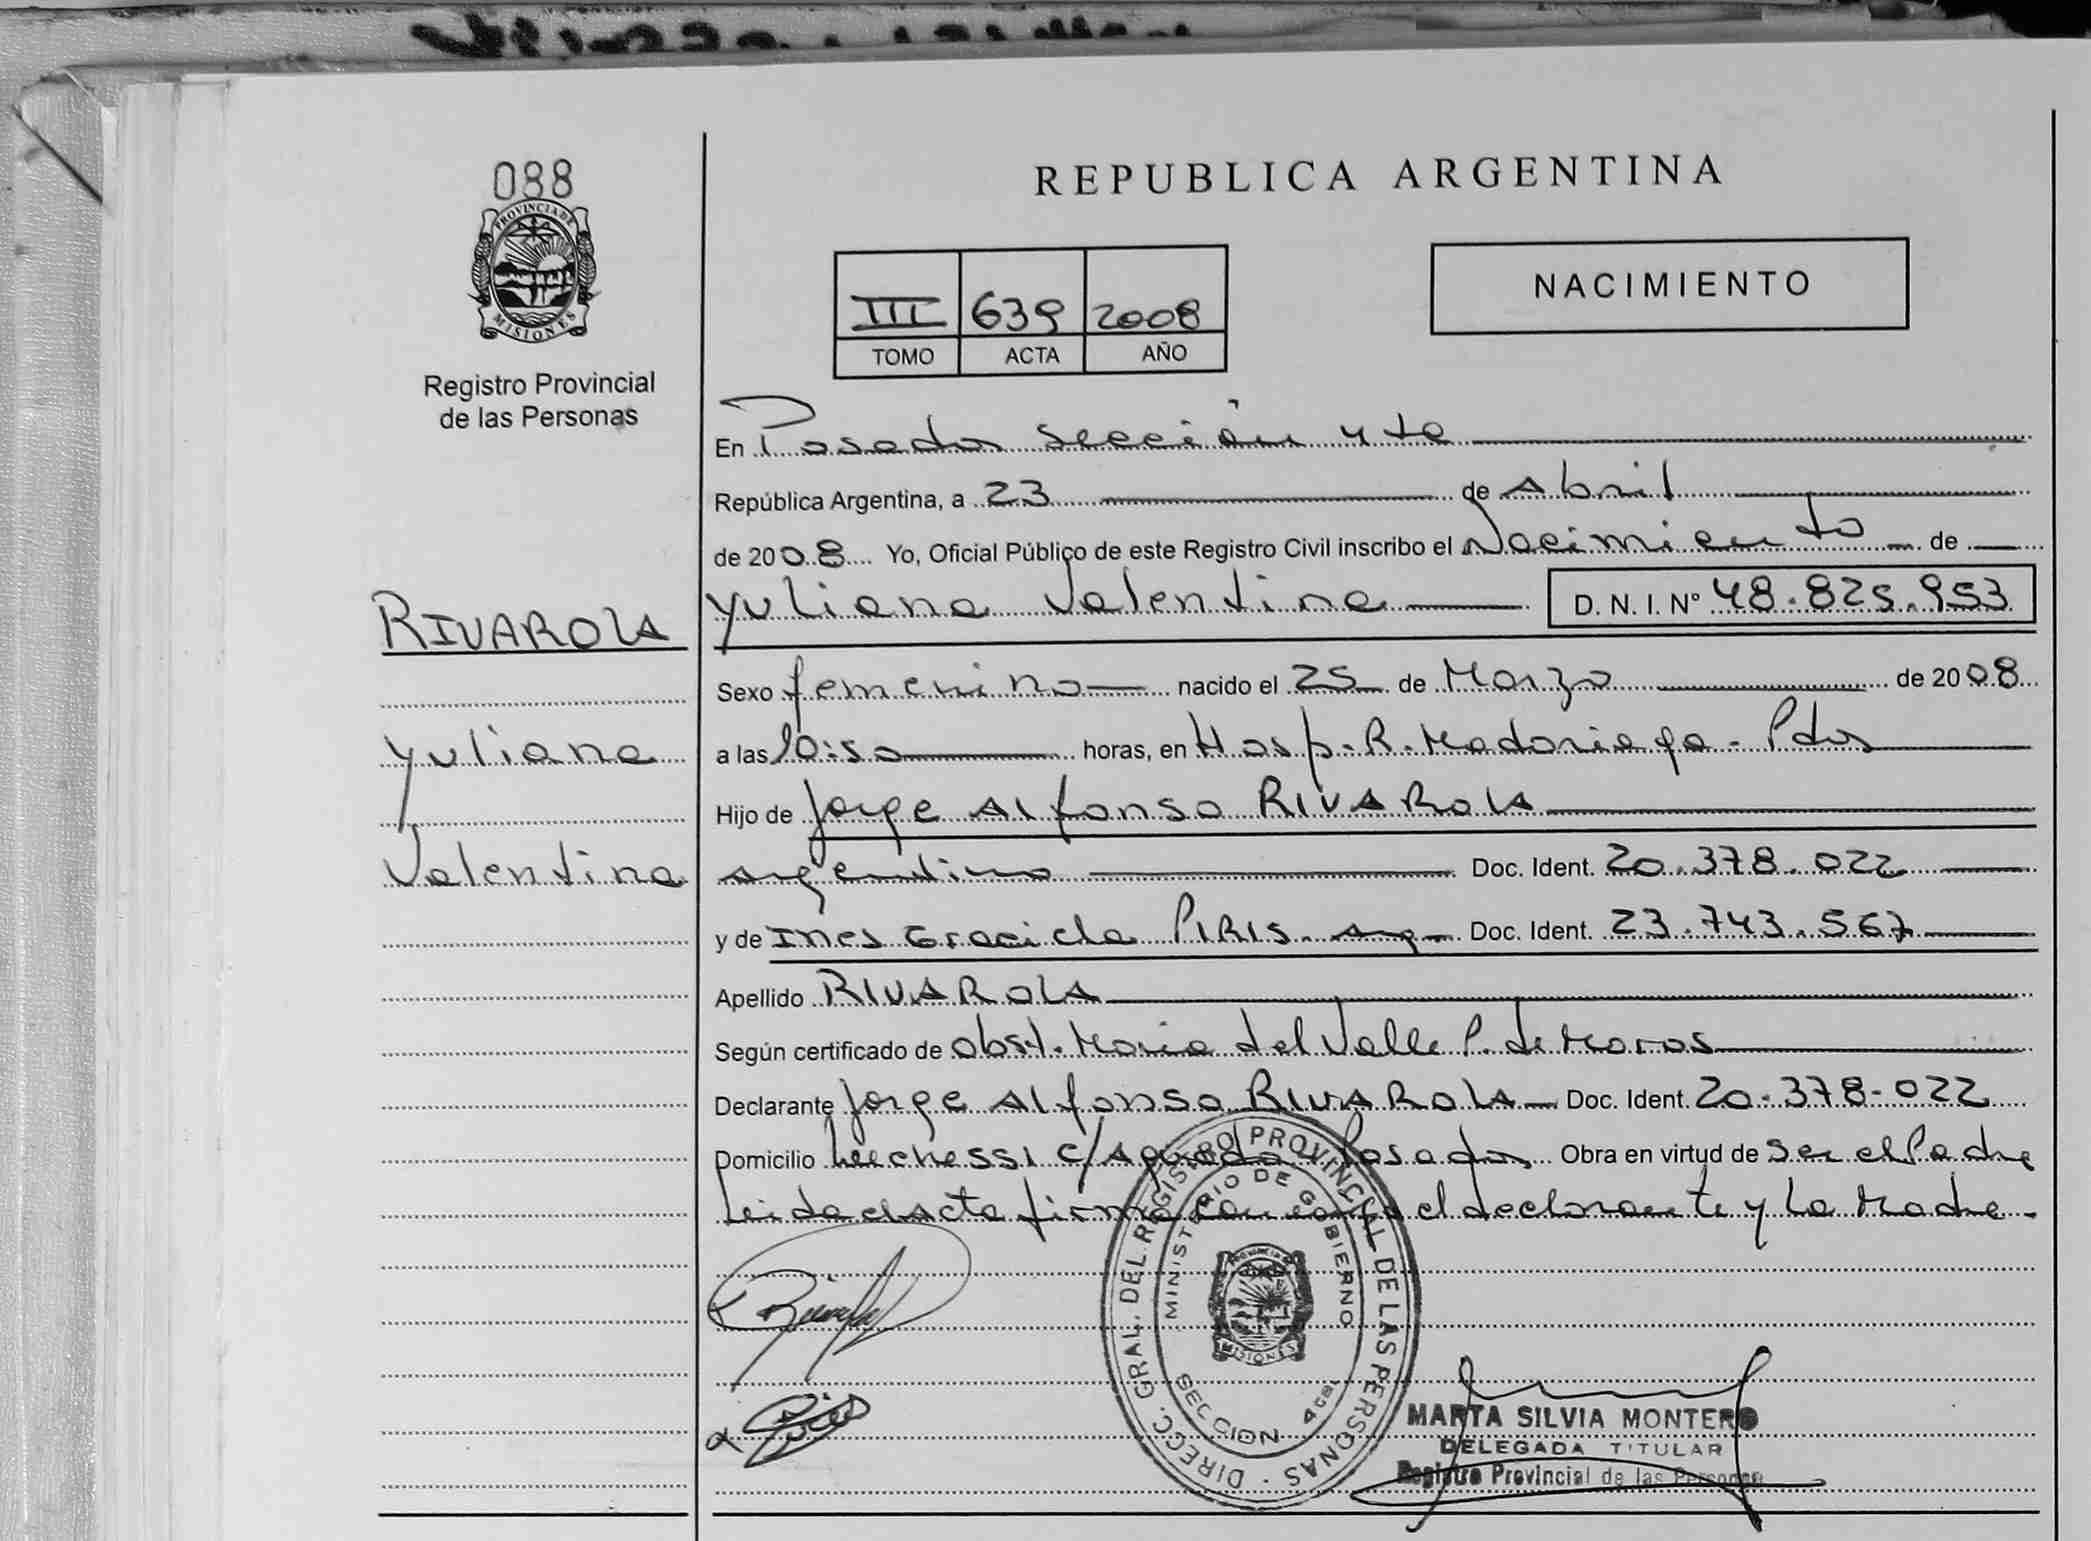 088
PROVINCIA DE
MISIONES
Registro Provincial
de las Personas
REPUBLICA ARGENTINA
III 639 2008
TOMO ACTA AÑO
NACIMIENTO
En Posadas Sección 4ta
República Argentina, a 23 de Abril
de 2008 Yo, Oficial Público de este Registro Civil inscribo el Nacimiento de
RIVAROLA
Yuliana Valentina D. N. I. Nº 48.825.953
Sexo femenino nacido el 25 de Marzo de 2008
Yuliana
a las 10:50 horas, en Hosp. R. Madariaga - Pdas
Hijo de Jorge Alfonso RIVAROLA
Valentina
argentino Doc. Ident. 20.378.022
y de Ines Graciela PIRIS. arg Doc. Ident. 23.743.567
Apellido RIVAROLA
Según certificado de obst. Maria del Valle P. de Moras
Declarante Jorge Alfonso RIVAROLA Doc. Ident. 20-378-022
Domicilio c/ Posadas Obra en virtud de ser el Padre
Leida el Acta firma con el declarante y la Madre.
DIRECC. GRAL. DEL REGISTRO PROVINCIAL DE LAS PERSONAS
MINISTERIO DE GOBIERNO
PROVINCIA DE
MISIONES
SECCION
MARTA SILVIA MONTERO
DELEGADA TITULAR
Registro Provincial de las Personas